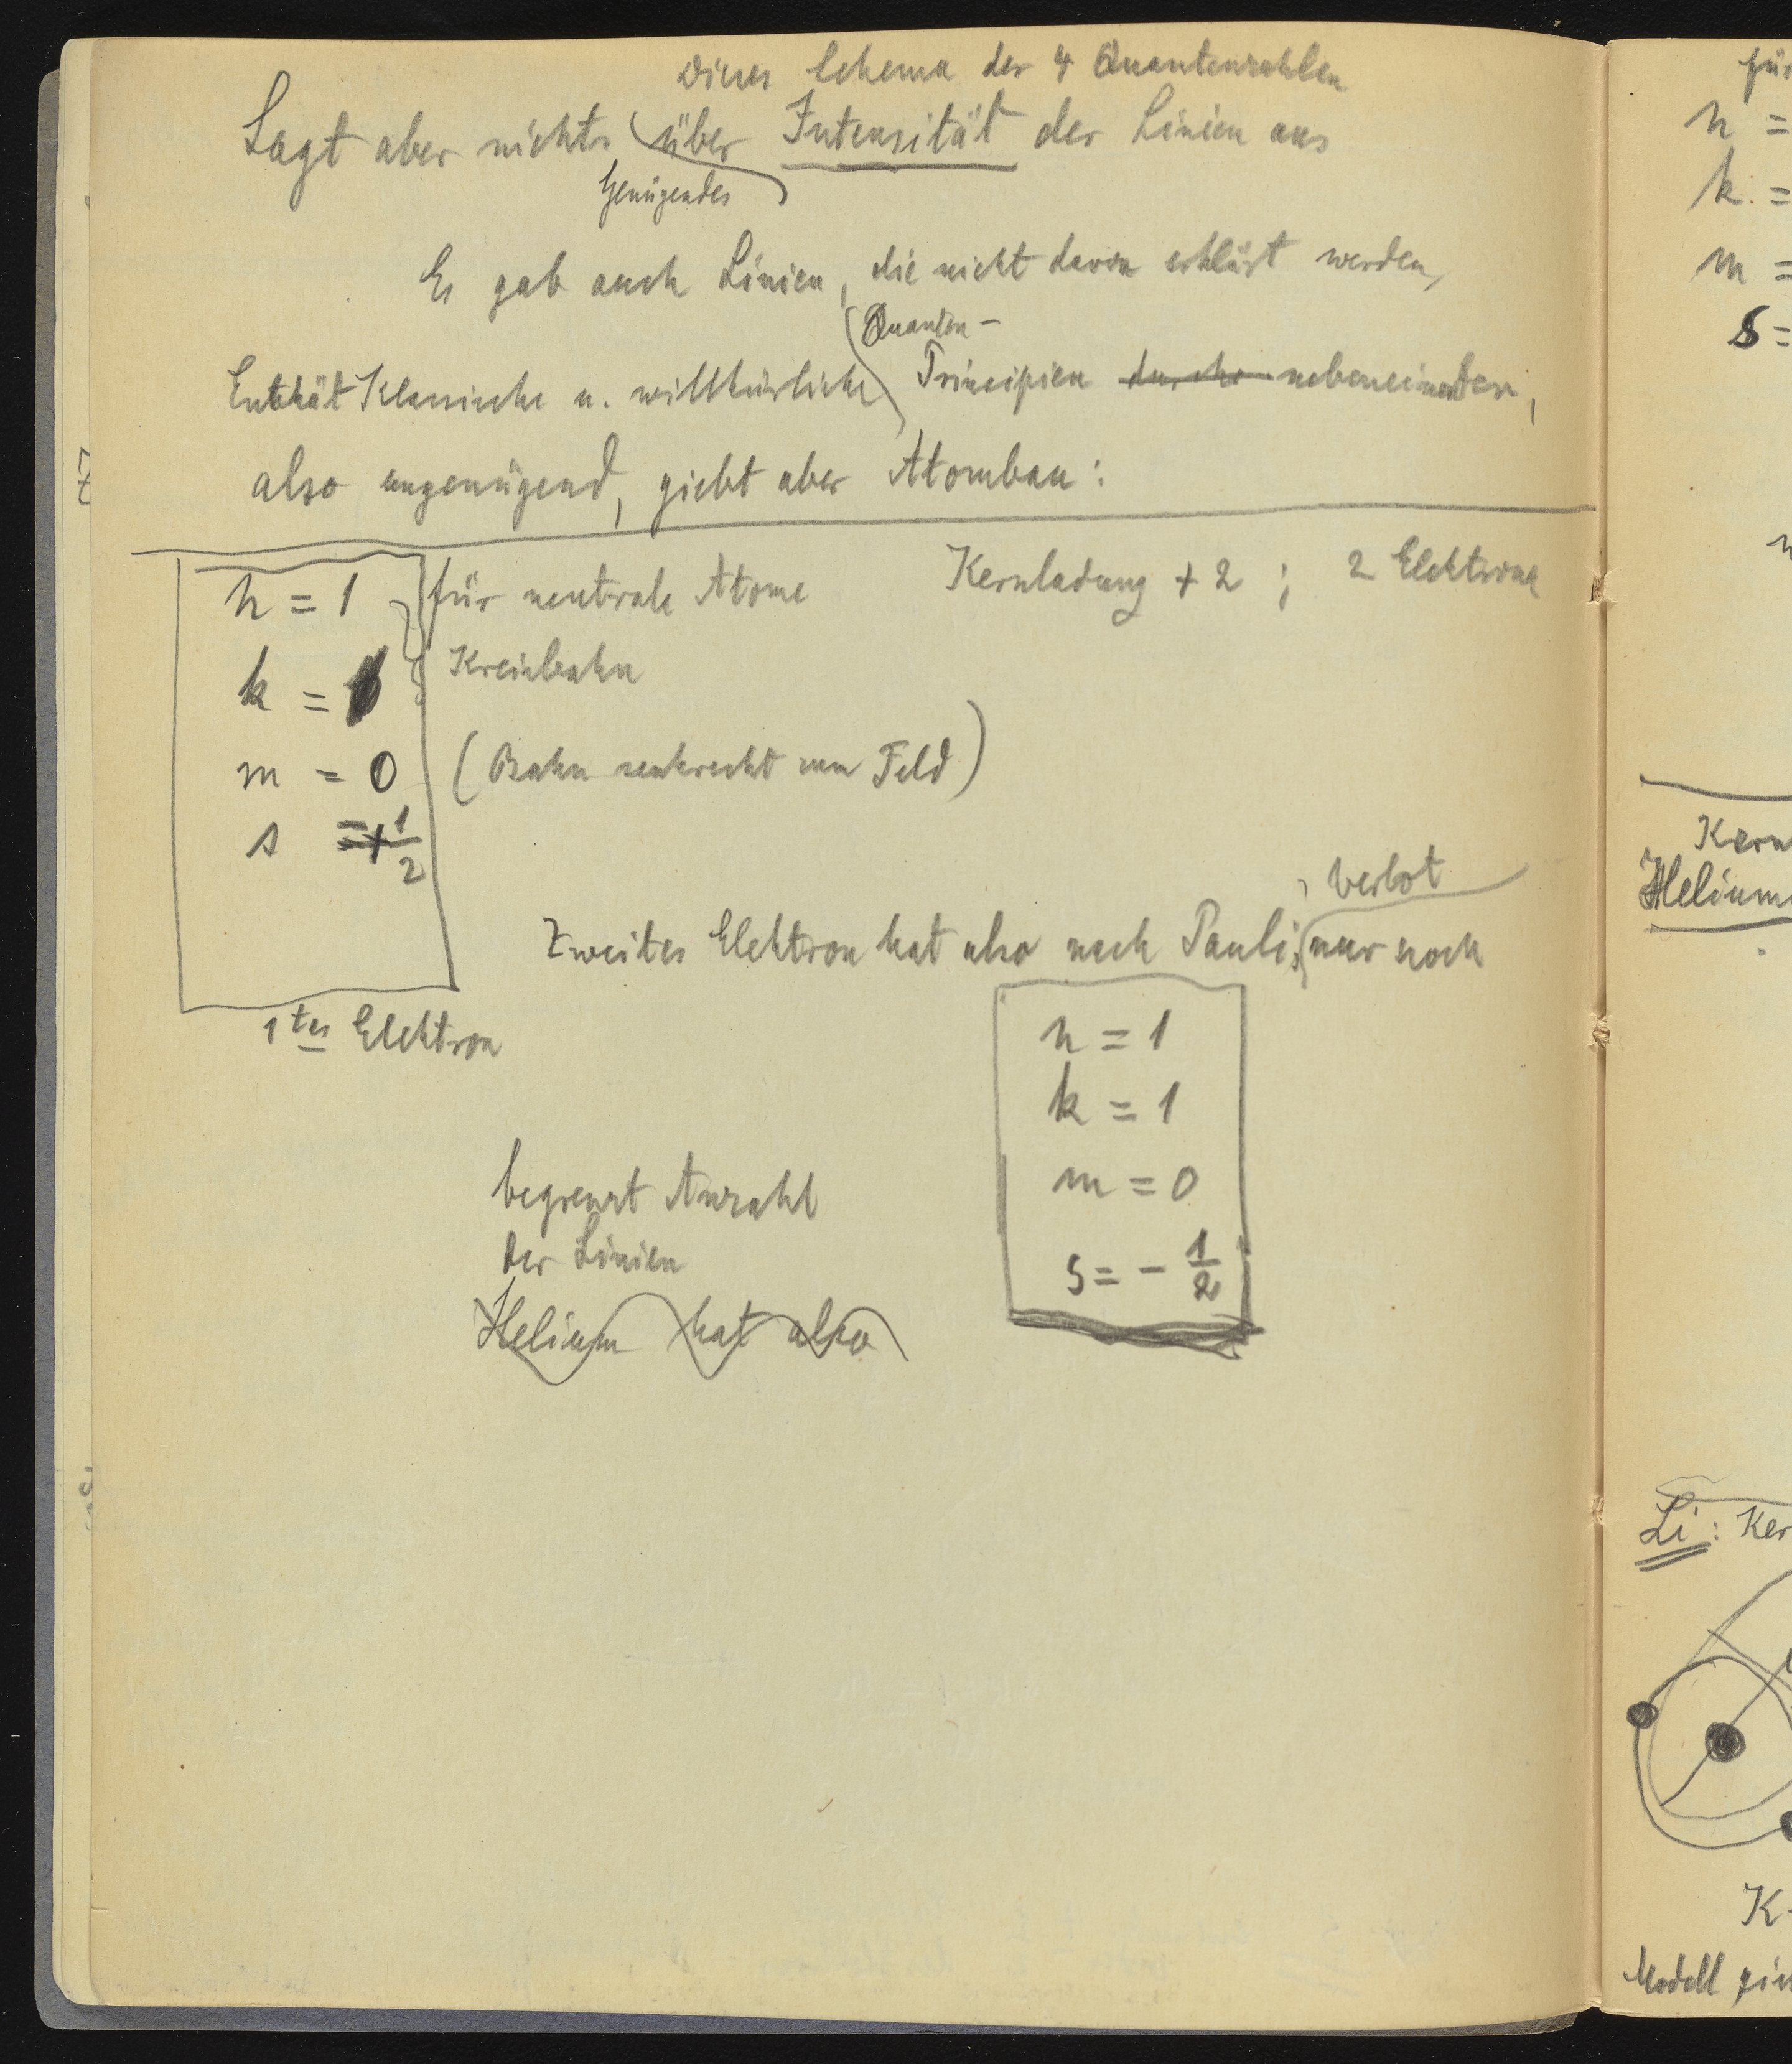 Dieses Schema der 4 Quantenzahlen
Sagt aber nichts über Intensität der Linien aus
Genügendes
Es gab auch Linien, die nicht davon erklärt werden,
Quanten-
Enthält Klassische u. willkürliche Principien durche nebeneinander,
also ungenügend, giebt aber Atombau:
n = 1 für neutrale Atome Kernladung + 2 ; 2 Elektrone
k = 1 Kreisbahn
m = 0 (Bahn senkrecht zum Feld)
s = + 1/2
Verbot
Zweites Elektron hat also nach Pauli, nur noch
1tes Elektron
n = 1
k = 1
m = 0
s = - 1/2
begrenzt Anzahl
der Linien
Helium hat also
für
n =
k =
m =
s =
n
Kern
Helium
Li : Ker
K-
Modell gie